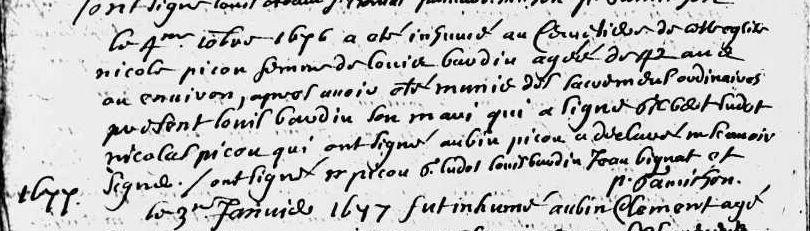 ont signé louis
le 4me xbre 1676 a eté inhumé au Cimetiere de cette eglise
nicole picou femme de louis baudin agée de 42 ans
ou environ, apres avoir eté munie des sacremens ordinaires
présent louis baudin son mari qui a signé gilbert ludot
nicolas picou qui ont signé aubin picou a declaré ne scavoir
signé. / ont signé n picou G. ludot louis baudin Jean bignat et
p. Damithon.
1677. le 3me Janvier 1677 fut inhumé aubin Clement agé